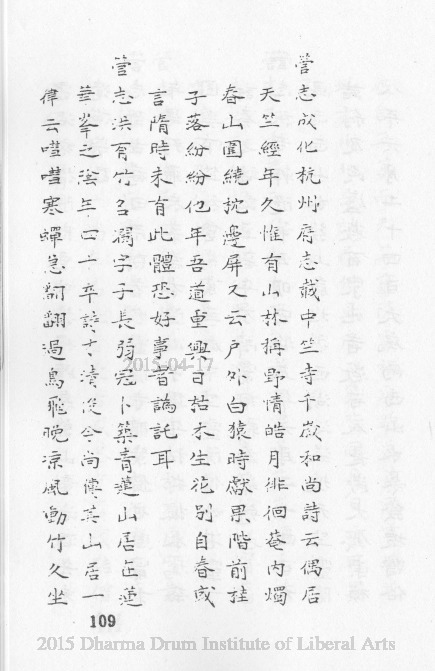 志成化杭州府志載中竺寺千歲和尚詩云偶居
天竺經年久惟有山林稱野情皓月徘徊菴內燭
春山圍繞枕邊屏又云戶外白猿時獻果階前挂
子落紛紛他年吾道重興日枯木生花別自春或
言隋時未有此體恐好事者譌託耳
志洪有竹名瀾字子長弱冠卜築青蓮山居正蓮
華峯之陰年四十卒詩才清俊今尚傳其山居一
律云嘒嘒寒蟬急翩翻過鳥飛晚凉風動竹久坐
2015-04-17
109
2015 Dharma Drum Institute of Liberal Arts